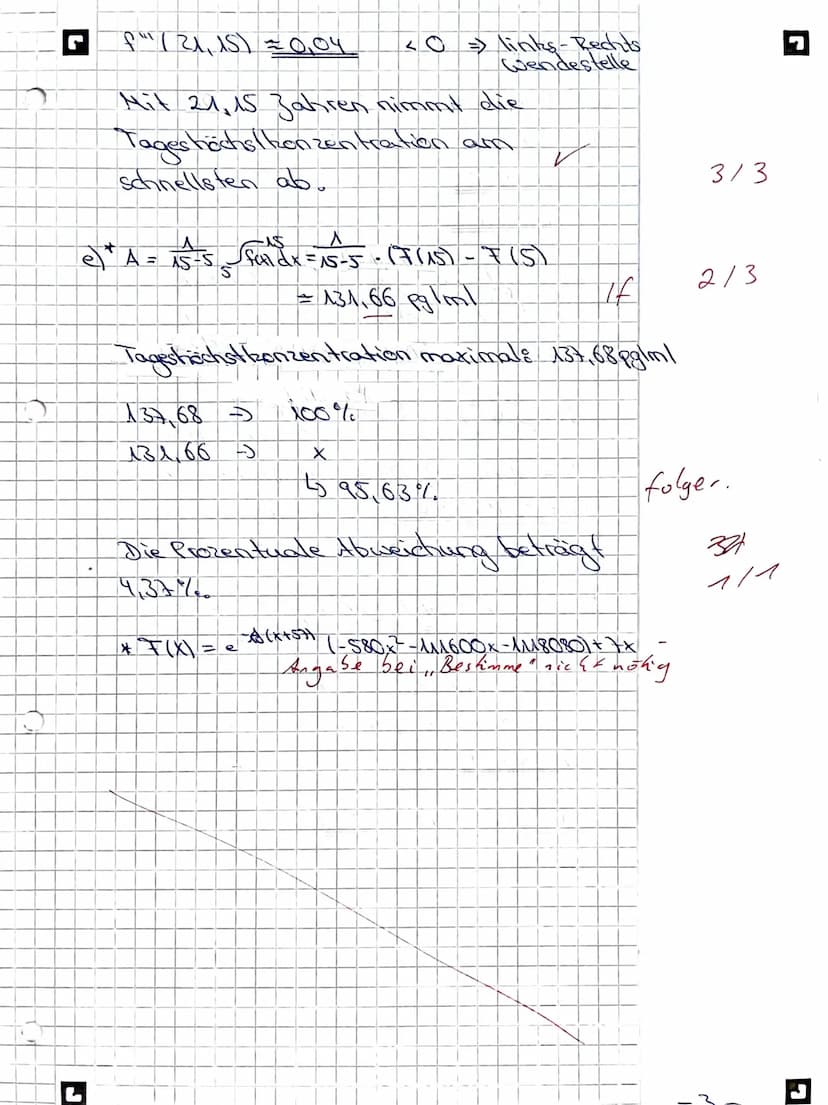 f'''(21,15) ≈ 0,04 < 0 ⇒ links-Rechts
Wendestelle
Mit 21,15 Jahren nimmt die
Tageshöchstkonzentration am
schnellsten ab. ✓ 3/3
e)* A = 1/(15-5) ₅∫¹⁵ f(x) dx = 1/(15-5) · (F(15) - F(5)
= 131,66 pg/ml 1f 2/3
Tageshöchstkonzentration maximal: 137,68 pg/ml
137,68 => 100%
131,66 -> x
↳ 95,63%. folger.
Die Prozentuale Abweichung beträgt
4,37%. 1/1
* F(x) = e (-580x² - 111600x - 1118080) + 7x
Angabe bei „Bestimme" nicht nötig
-3-